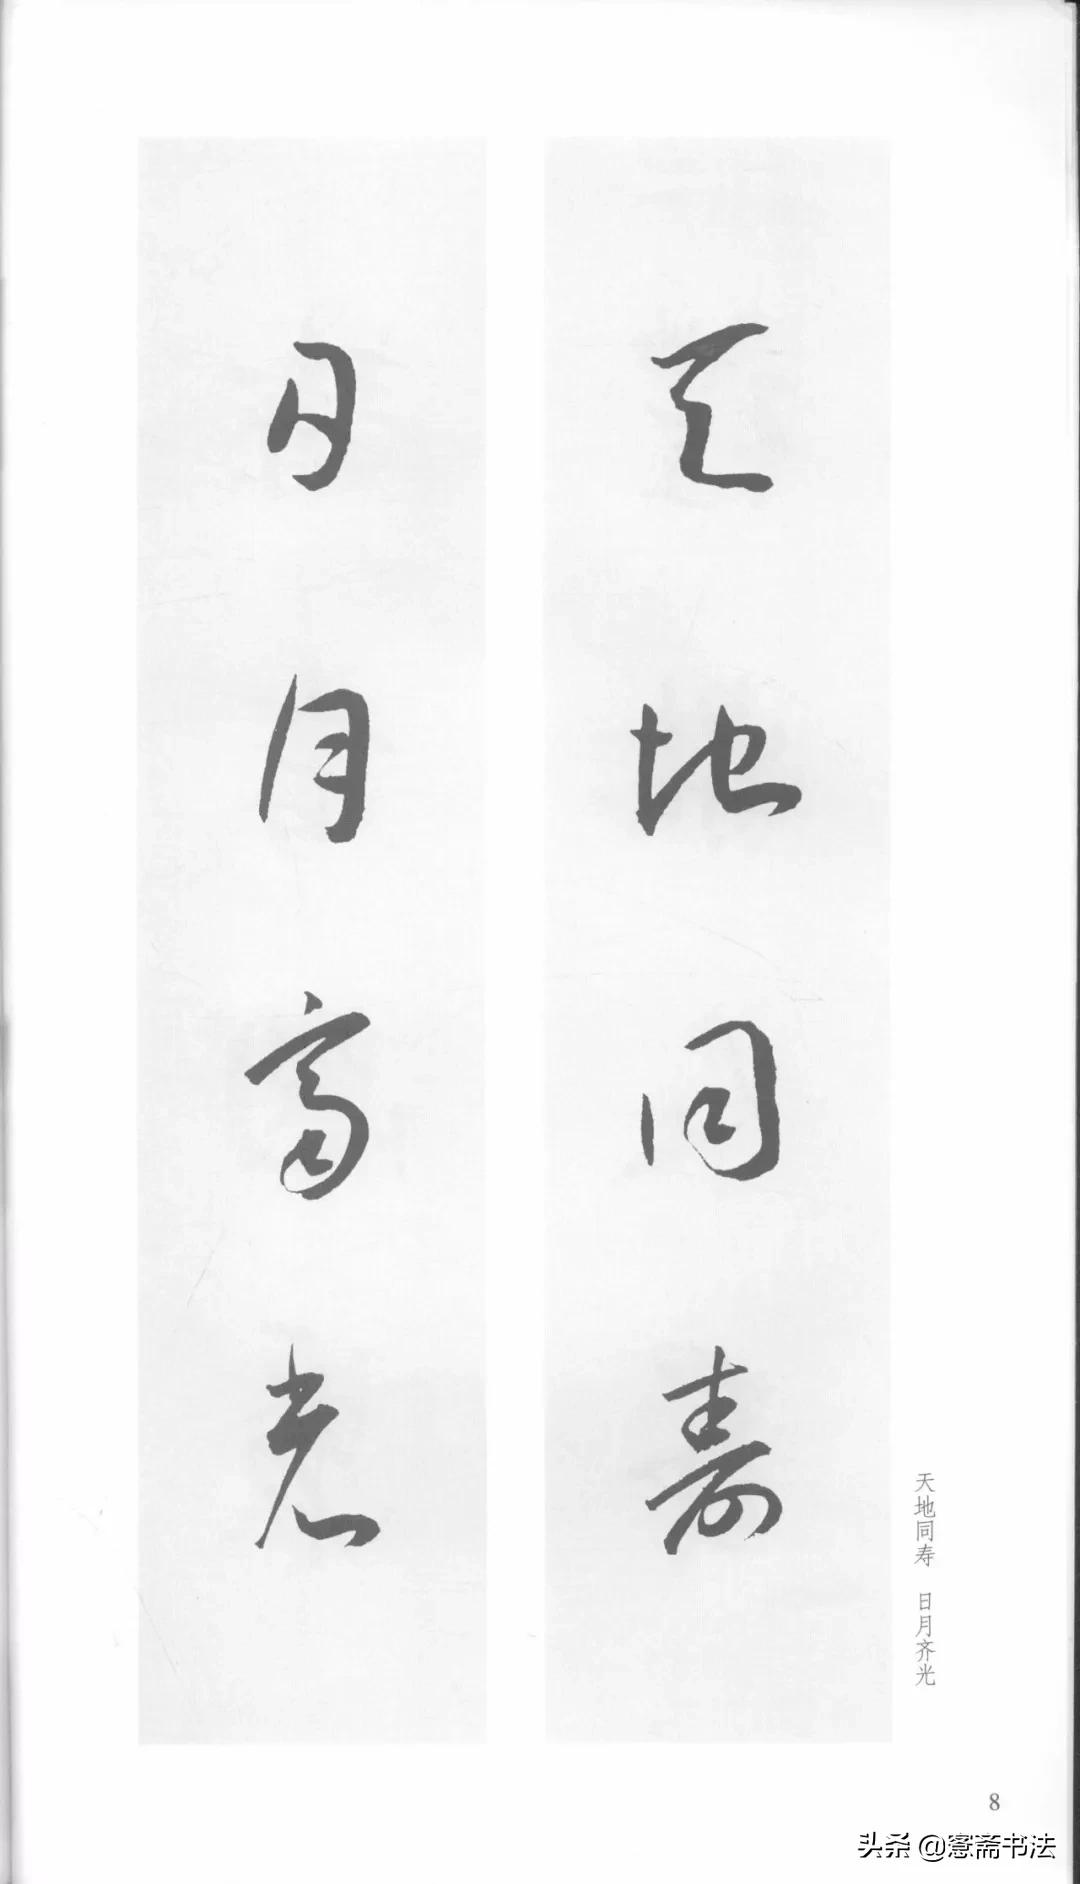 天地同寿
日月齐光
天地同寿 日月齐光
8
头条 @窓斋书法